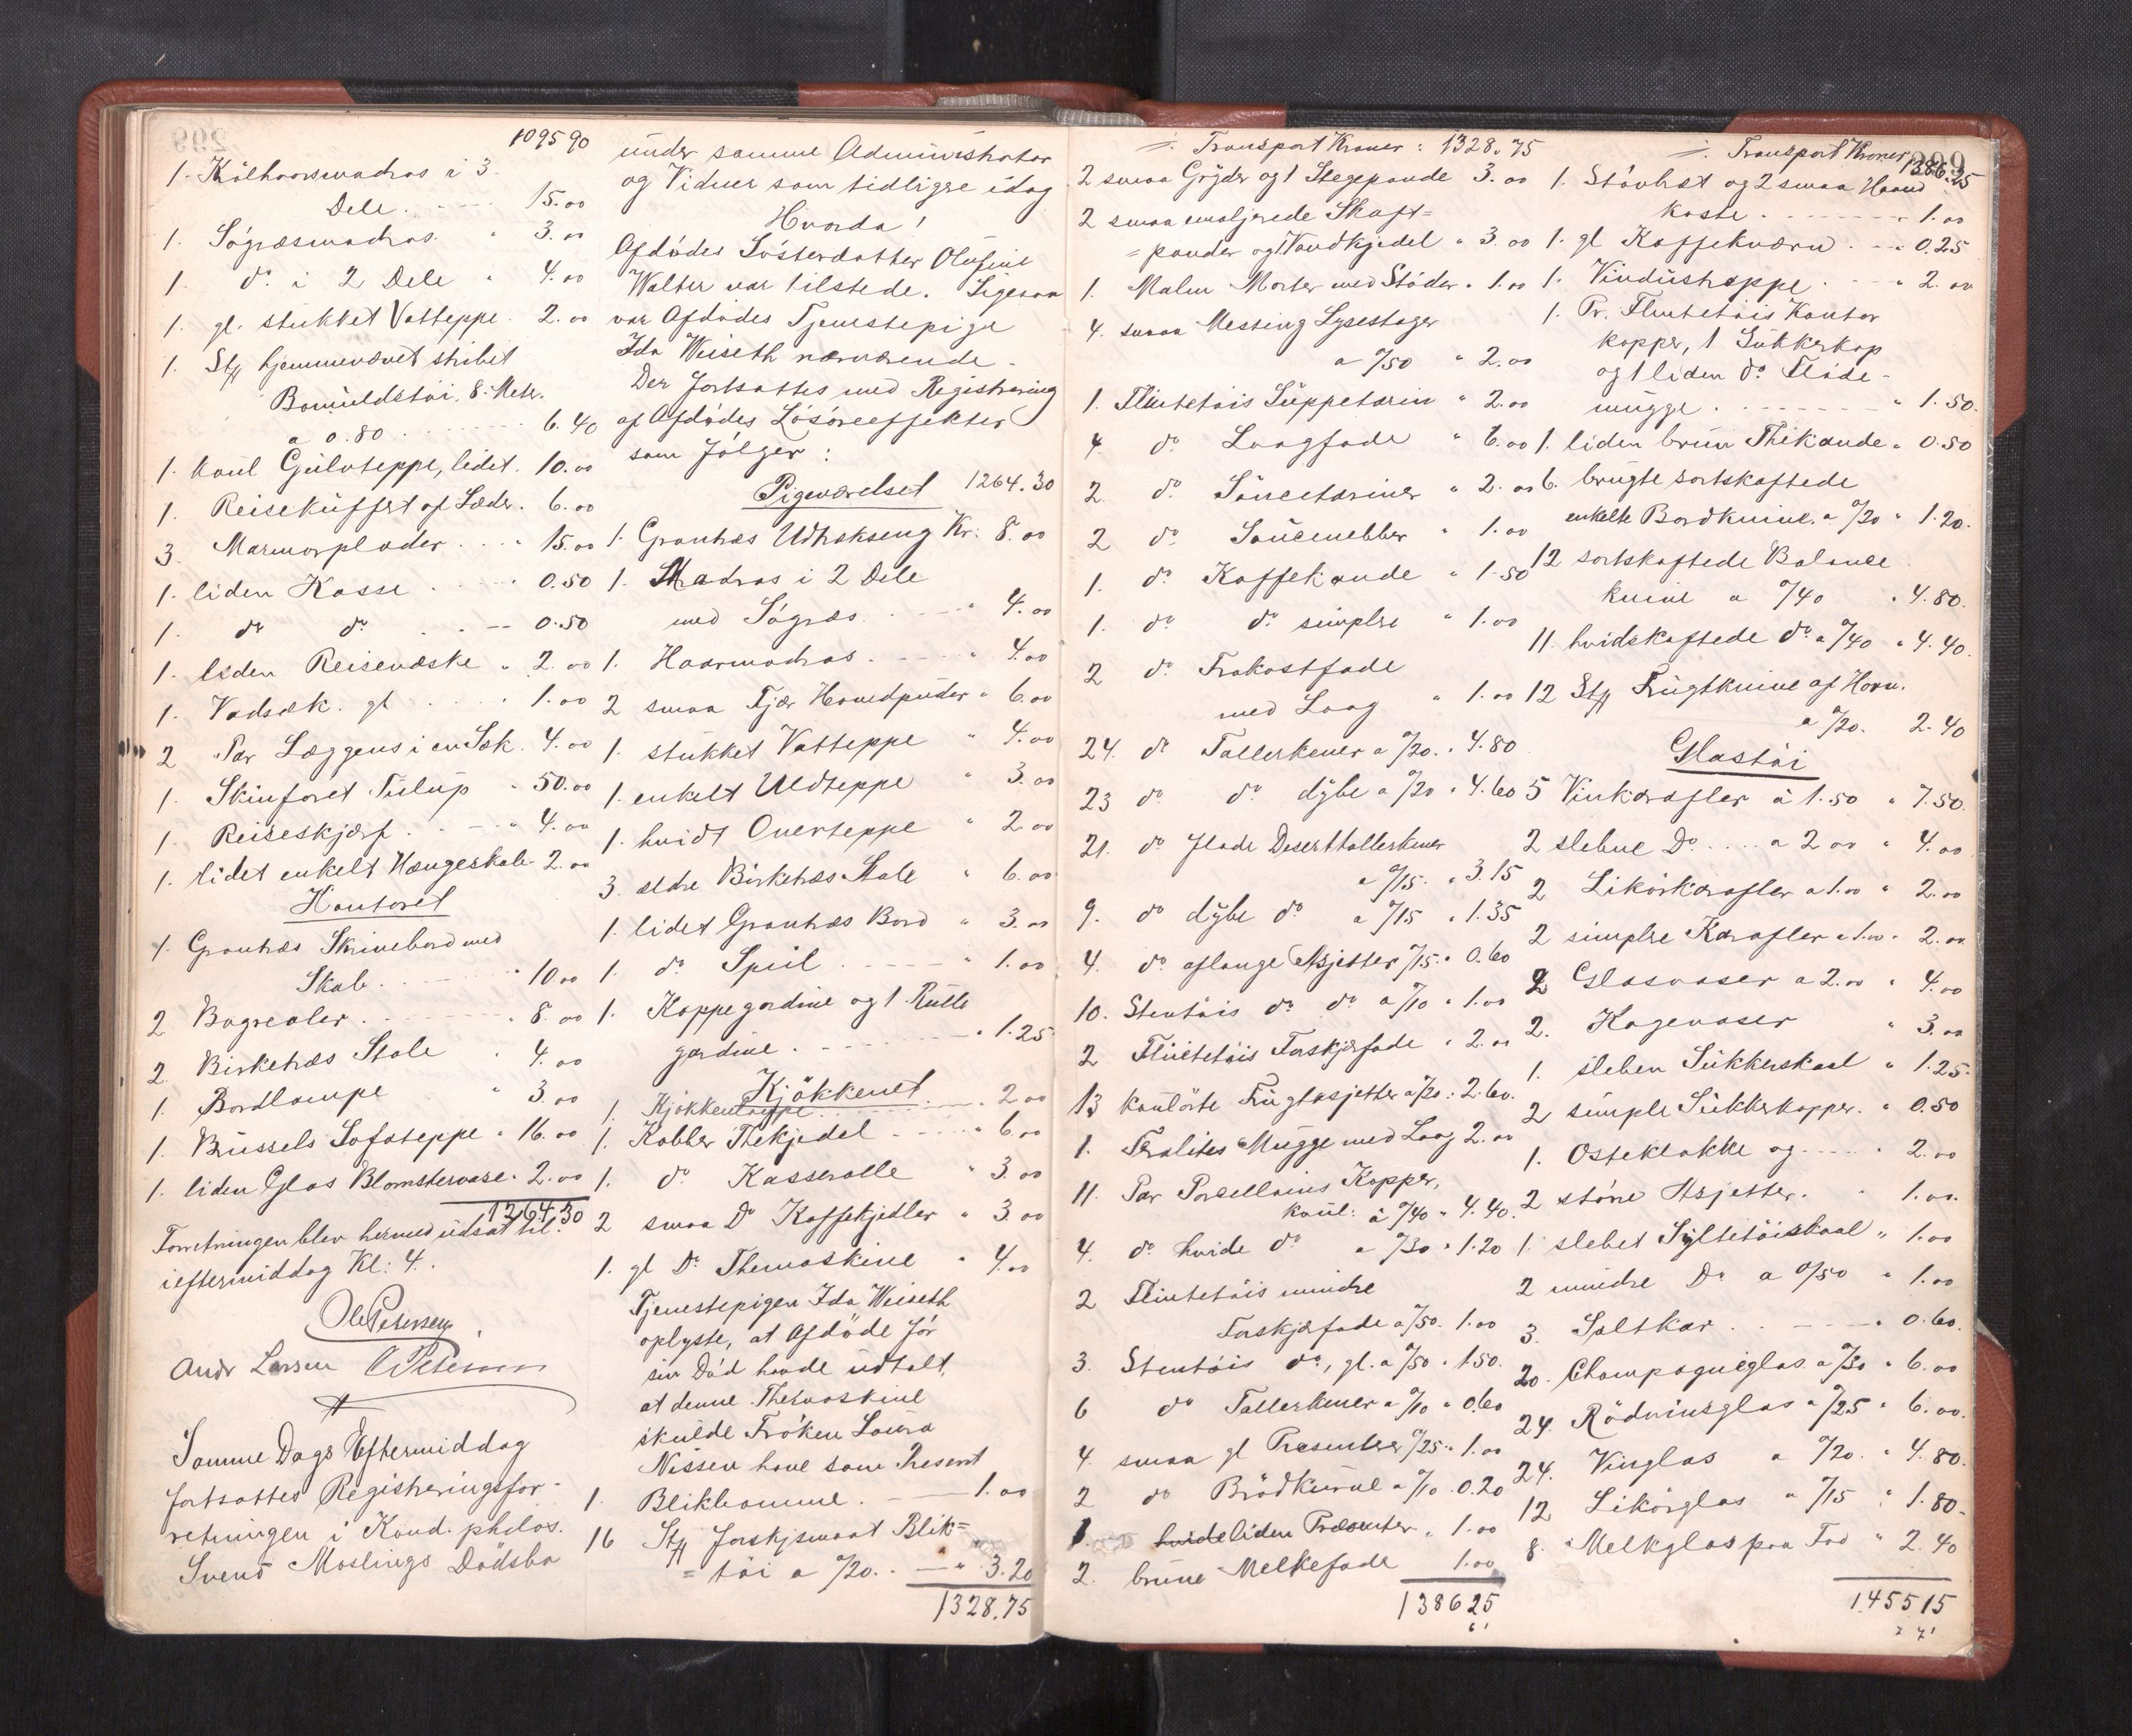 1095 90
1. Kölhaarsmadras i 3
Dele . . . . 15.00
1. Søgræsmadras . " 3.00
1 do i 2 Dele " 4.00
1. gl. stukket Vatteppe . 2.00
1. Stk hjemmevævet stribet
Bomuldstøi, 8. Metr.
a 0.80 . . . . 6.40
1. koul Gulvteppe, lidet . 10.00
1. Reisekuffert af Læder . 6.00
3. Marmorplader . . . 15.00
1. liden Kasse . . . 0.50
1. do do . . . 0.50
1. liden Reisevæske " 2.00
1. Vadsæk. gl . . . . 1.00
2 Par Læggens i en Sæk . 4.00
1. Skinforet Tulup " 50.00
1. Reiseskjærf . . . " 4.00
1. lidet enkelt Hængeskab 2.00
Kontoret
1. Grantræs Skrivebord med
Skab . . . . " 10.00
2 Bogreoler . . . . " 8.00
2 Birketræs Stole " 4.00
1. Bordlampe " 3.00
1. Brüssels Sofateppe " 16.00
1. liden Glas Blomstervase . 2.00
1264.30
Forretningen blev hermed udsat til
ieftermiddag Kl: 4.
Ole Petersen
Andr Larsen CPetersen
Samme Dags Eftermiddag
fortsattes Registreringsfor-
retningen i Kand. philos.
Svend Moslings Dødsbo
under samme Administrator
og Vidner som tidligere idag
Hvorda!
Afdødes Søsterdatter Olufine
Walter var tilstede. Ligesaa
var Afdødes Tjenestepige
Ida Weiseth nærværende -
Der fortsattes med Registrering
af Afdødes Løsøreeffekter
som følger:
Pigeværelset 1264.30
1. Grantræs Udtræksseng Kr. 8.00
1. Madras i 2 Dele
med Søgræs . . . " 4.00
1. Haarmadras . . . " 4.00
2 smaa Fjær Hovedpuder " 6.00
1. stukket Vatteppe " 4.00
1. enkelt Uldteppe " 3.00
1. hvidt Overteppe " 2.00
3. ældre Birketræs Stole " 6.00
1. lidet Grantræs Bord " 3.00
1. do Speil . . . " 1.00
1. Kappegardine og 1 Rulle
gardine . . . . " 1.25
Kjøkkenet
1. Kjøkkenlampe . . . 2.00
1. Kobber Thekjedel . . . " 6.00
1. do Kasserolle " 3.00
2 smaa Do Kaffekjedler " 3.00
1. gl Do Themaskine " 4.00
Tjenestepigen Ida Weiseth
oplyste, at Afdøde før
sin Død havde udtalt,
at denne Themaskine
skulde Frøken Laura
Nissen have som Present
1. Blikkomme . . . 1.00
16 Stk forskjsmaat Blik=
= tøi a 0/20 . . — " 3.20
1328.75
./. Transport Kroner: 1328.75
2 smaa Gryder og 1 Stegepande 3.00
2 smaa emaljerede Skaft=
= pander og 1 Vandkjedel " 3.00
1. Malm Morter med Støder " 1.00
4. smaa Messing Lysestager
a 0/50 " 2.00
1. Flintetøis Suppeterrin " 2.00
4 do Laagfade " 6.00
2 do Saucetæriner " 2.00
2 do Saucenebber " 1.00
1. do Kaffekande " 1.50
1. do do simplre " 1.00
2 do Frokostfade
med Laag " 1.00
24. do Tallerkener a 0/20 . 4.80
23 do do dybe a 0/20 " 4.60
21. do flade Deserttallerkener
a 0/15 . " 3.15
9. do dybe do a 0/15 " 1.35
4. do aflange Asjetter 0/15 . 0.60
10. Stentøis do do a 0/10 " 1.00
2 Flintetøis Forskjærfade " 2.00
13 koulørte Frugtasjetter a 0/20 : 2.60.
1. Feralites Mugge med Laag 2.00
11. Par Porcellains Kopper,
koul: à 0/40 " 4.40.
4. do hvide do a 0/30 " 1.20
2 Flintetøis mindre
Forskjærfade a 0/50 . 1.00
3. Stentøis do, gl. a 0/50 " 1.50.
6 do Tallerkener a 0/10 " 0.60
4. smaa gl Presenteer 0/25 " 1.00
2 do Brødkurve a 0/10 . 0.20
1. hvide liden Præsenter " 1.00
2. brune Melkefade 1.00
1386 25
./. Transport Kroner 1386.25
1. Støvkst og 2 smaa Haand
koste . . . . " 1.00
1. gl Kaffekværn . . " 0.25
1. Vindustrappe . . . " 2.00
1. Pr. Flintetøis Kantor
kopper, 1 Sukkerkop
og 1 liden do Fløde-
mugge . . . . " 1.50.
1. liden brun Thekande " 0.50
6. brugte sortskaftede
enkelte Bordknive. a 0/20 " 1.20.
12 sortskaftede Balance
knive a 0/40 " 4.80.
11 hvidskaftede do a 0/40 " 4.40.
12 Stk Frugtknive af Horn.
a 0/20. 2.40
Glastøi
5 Vinkarafler à 1.50 " 7.50.
2 slebne Do . . . . a 2.00 " 4.00
2 Likørkarafler a 1.00 " 2.00
2 simplre Karafler a 1.00 " 2.00
2 Glasvaser a 2.00 " 4.00
2. Kagevaser " 3.00
1. sleben Sukkerskaal " 1.25.
2 simple Sukkerkopper. " 0.50
1. Osteklokke og . . . . 2.00
2 større Asjetter. " 1.00.
1. slebet Syltetøiskaal " 1.00
2 mindre Do a 0/50 " 1.00
3. Saltkar . . . . " 0.60.
20. Champagneglas a 0/30 " 6.00
24. Rødvinsglas a 0/25 " 6.00.
24. Vinglas a 0/20. " 4.80.
12 Likørglas a 0/15 " 1.80.
8. Melkglas paa Fod " 2.40
1455 15